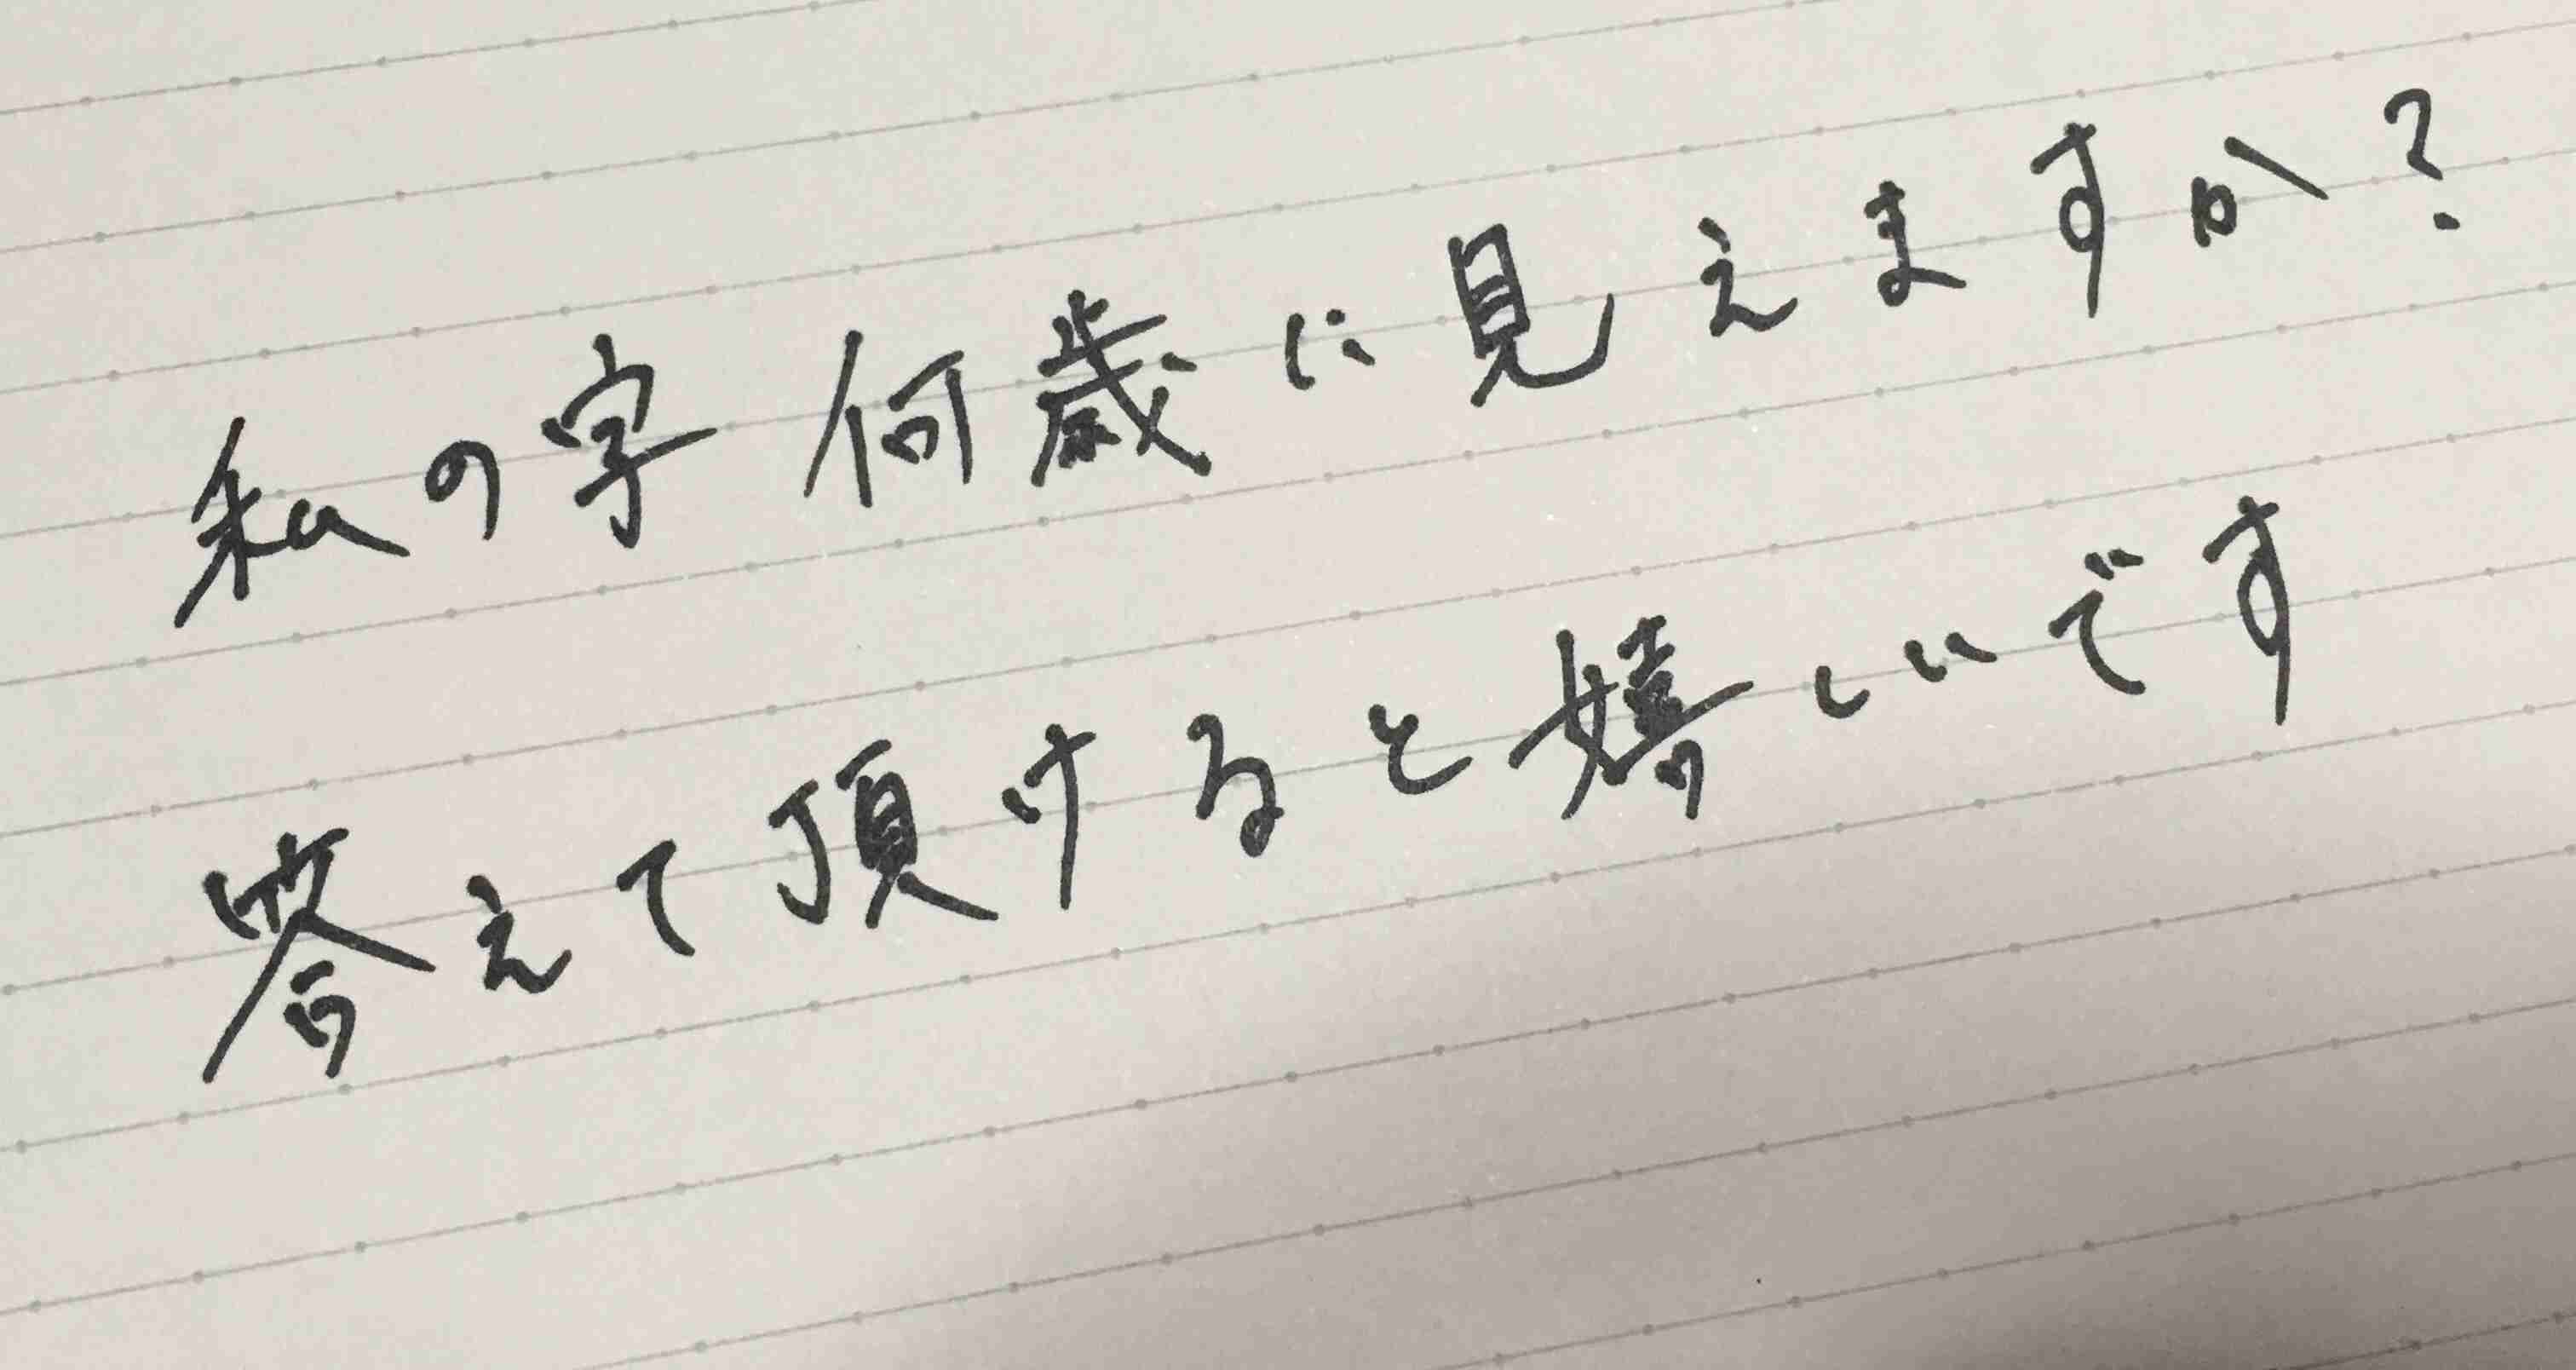 私の字 何歳に見えますか?
答えて頂けると嬉しいです